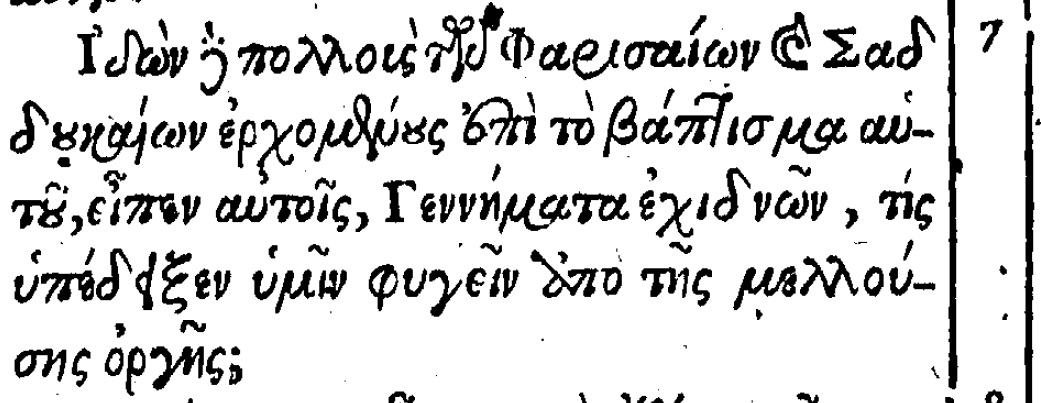 Ἰδὼν δὲ πολλοὺς τῶν Φαρισαίων καὶ Σαδ 7
δουκαίων ἐρχομένους ἐπὶ τὸ βάπτισμα αὑ-
τοῦ, εἶπεν αὐτοῖς, Γεννήματα ἐχιδνῶν, τίς
ὑπέδειξεν ὑμῖν φυγεῖν ἀπὸ τῆς μελλού-
σης ὀργῆς;